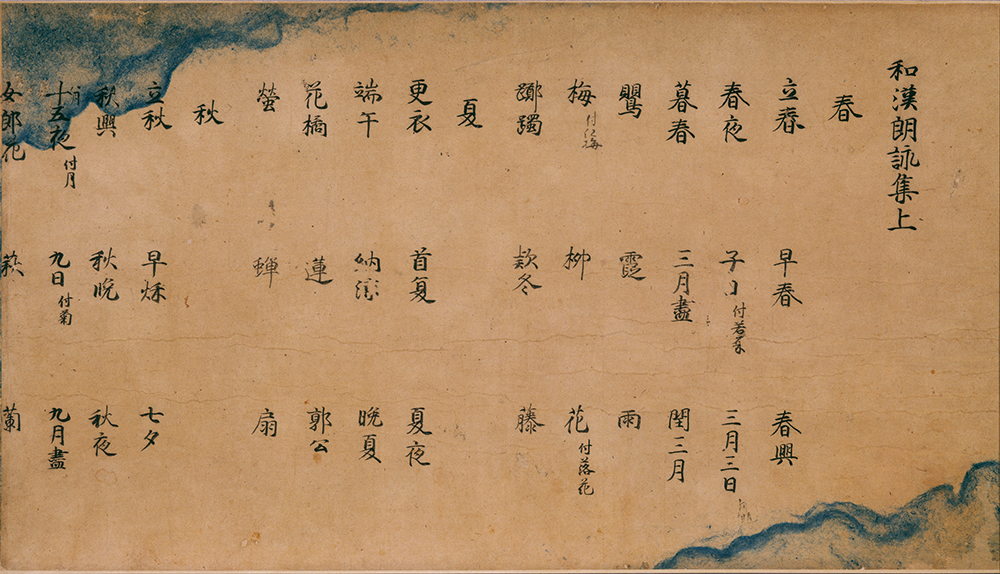 和漢朗詠集上
春
立春 早春 春興
春夜 子日付若菜 三月三日
暮春 三月盡 閏三月
鸎 霞 雨
梅付紅梅 柳 花付落花
躑躅 款冬 藤
夏
更衣 首夏 夏夜
端午 納涼 晩夏
花橘 蓮 郭公
螢 蟬 扇
秋
立秋 早秌 七夕
秋興 秋晩 秋夜
十五夜付月 九日付菊 九月盡
女郎花 萩 蘭